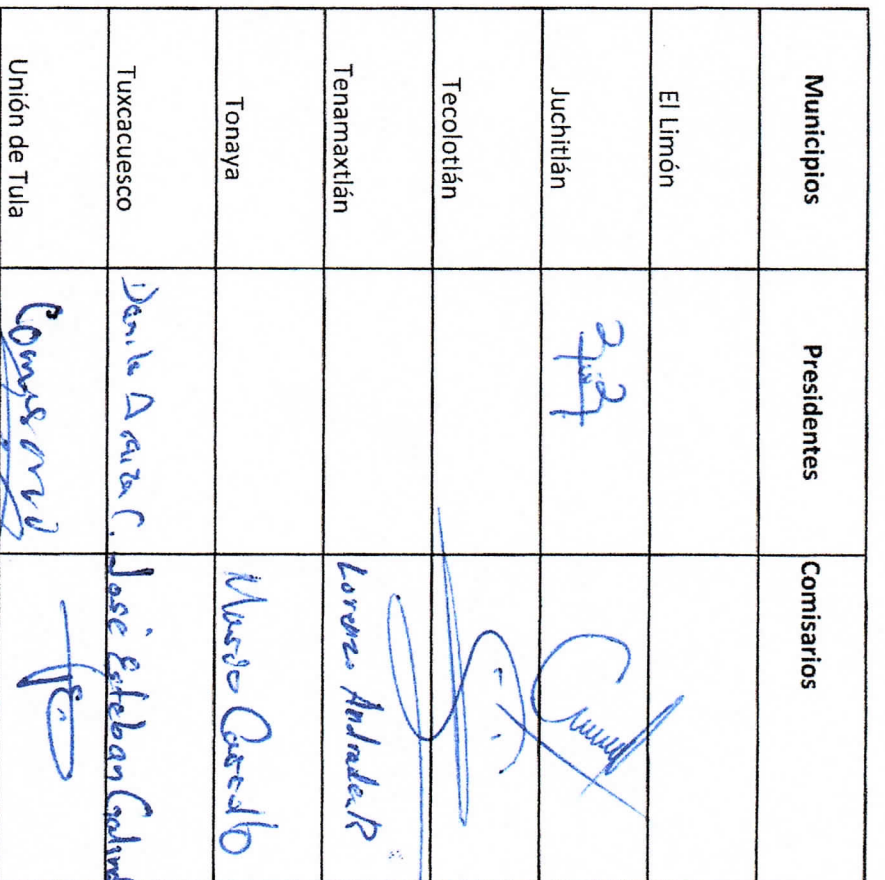 Municipios Presidentes Comisarios
El Limón
Juchitlán
Tecolotlán
Tenamaxtlán Lorenzo Andrade R
Tonaya
Tuxcacuesco Danila Araiza C. José Esteban Galind
Unión de Tula